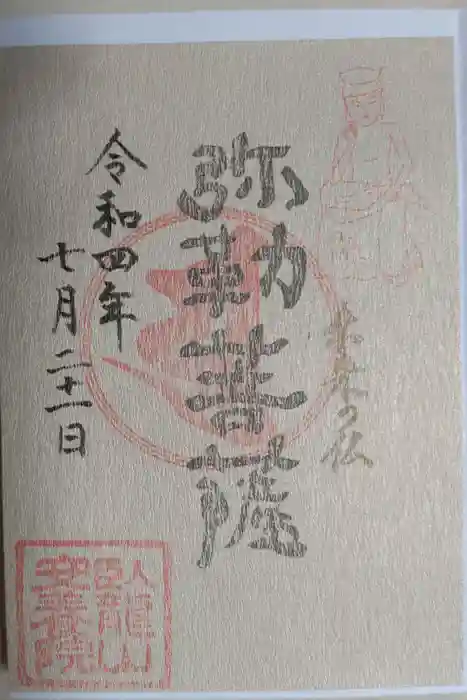 未来の仏
弥勒菩薩
令和四年
七月二十一日
安養院